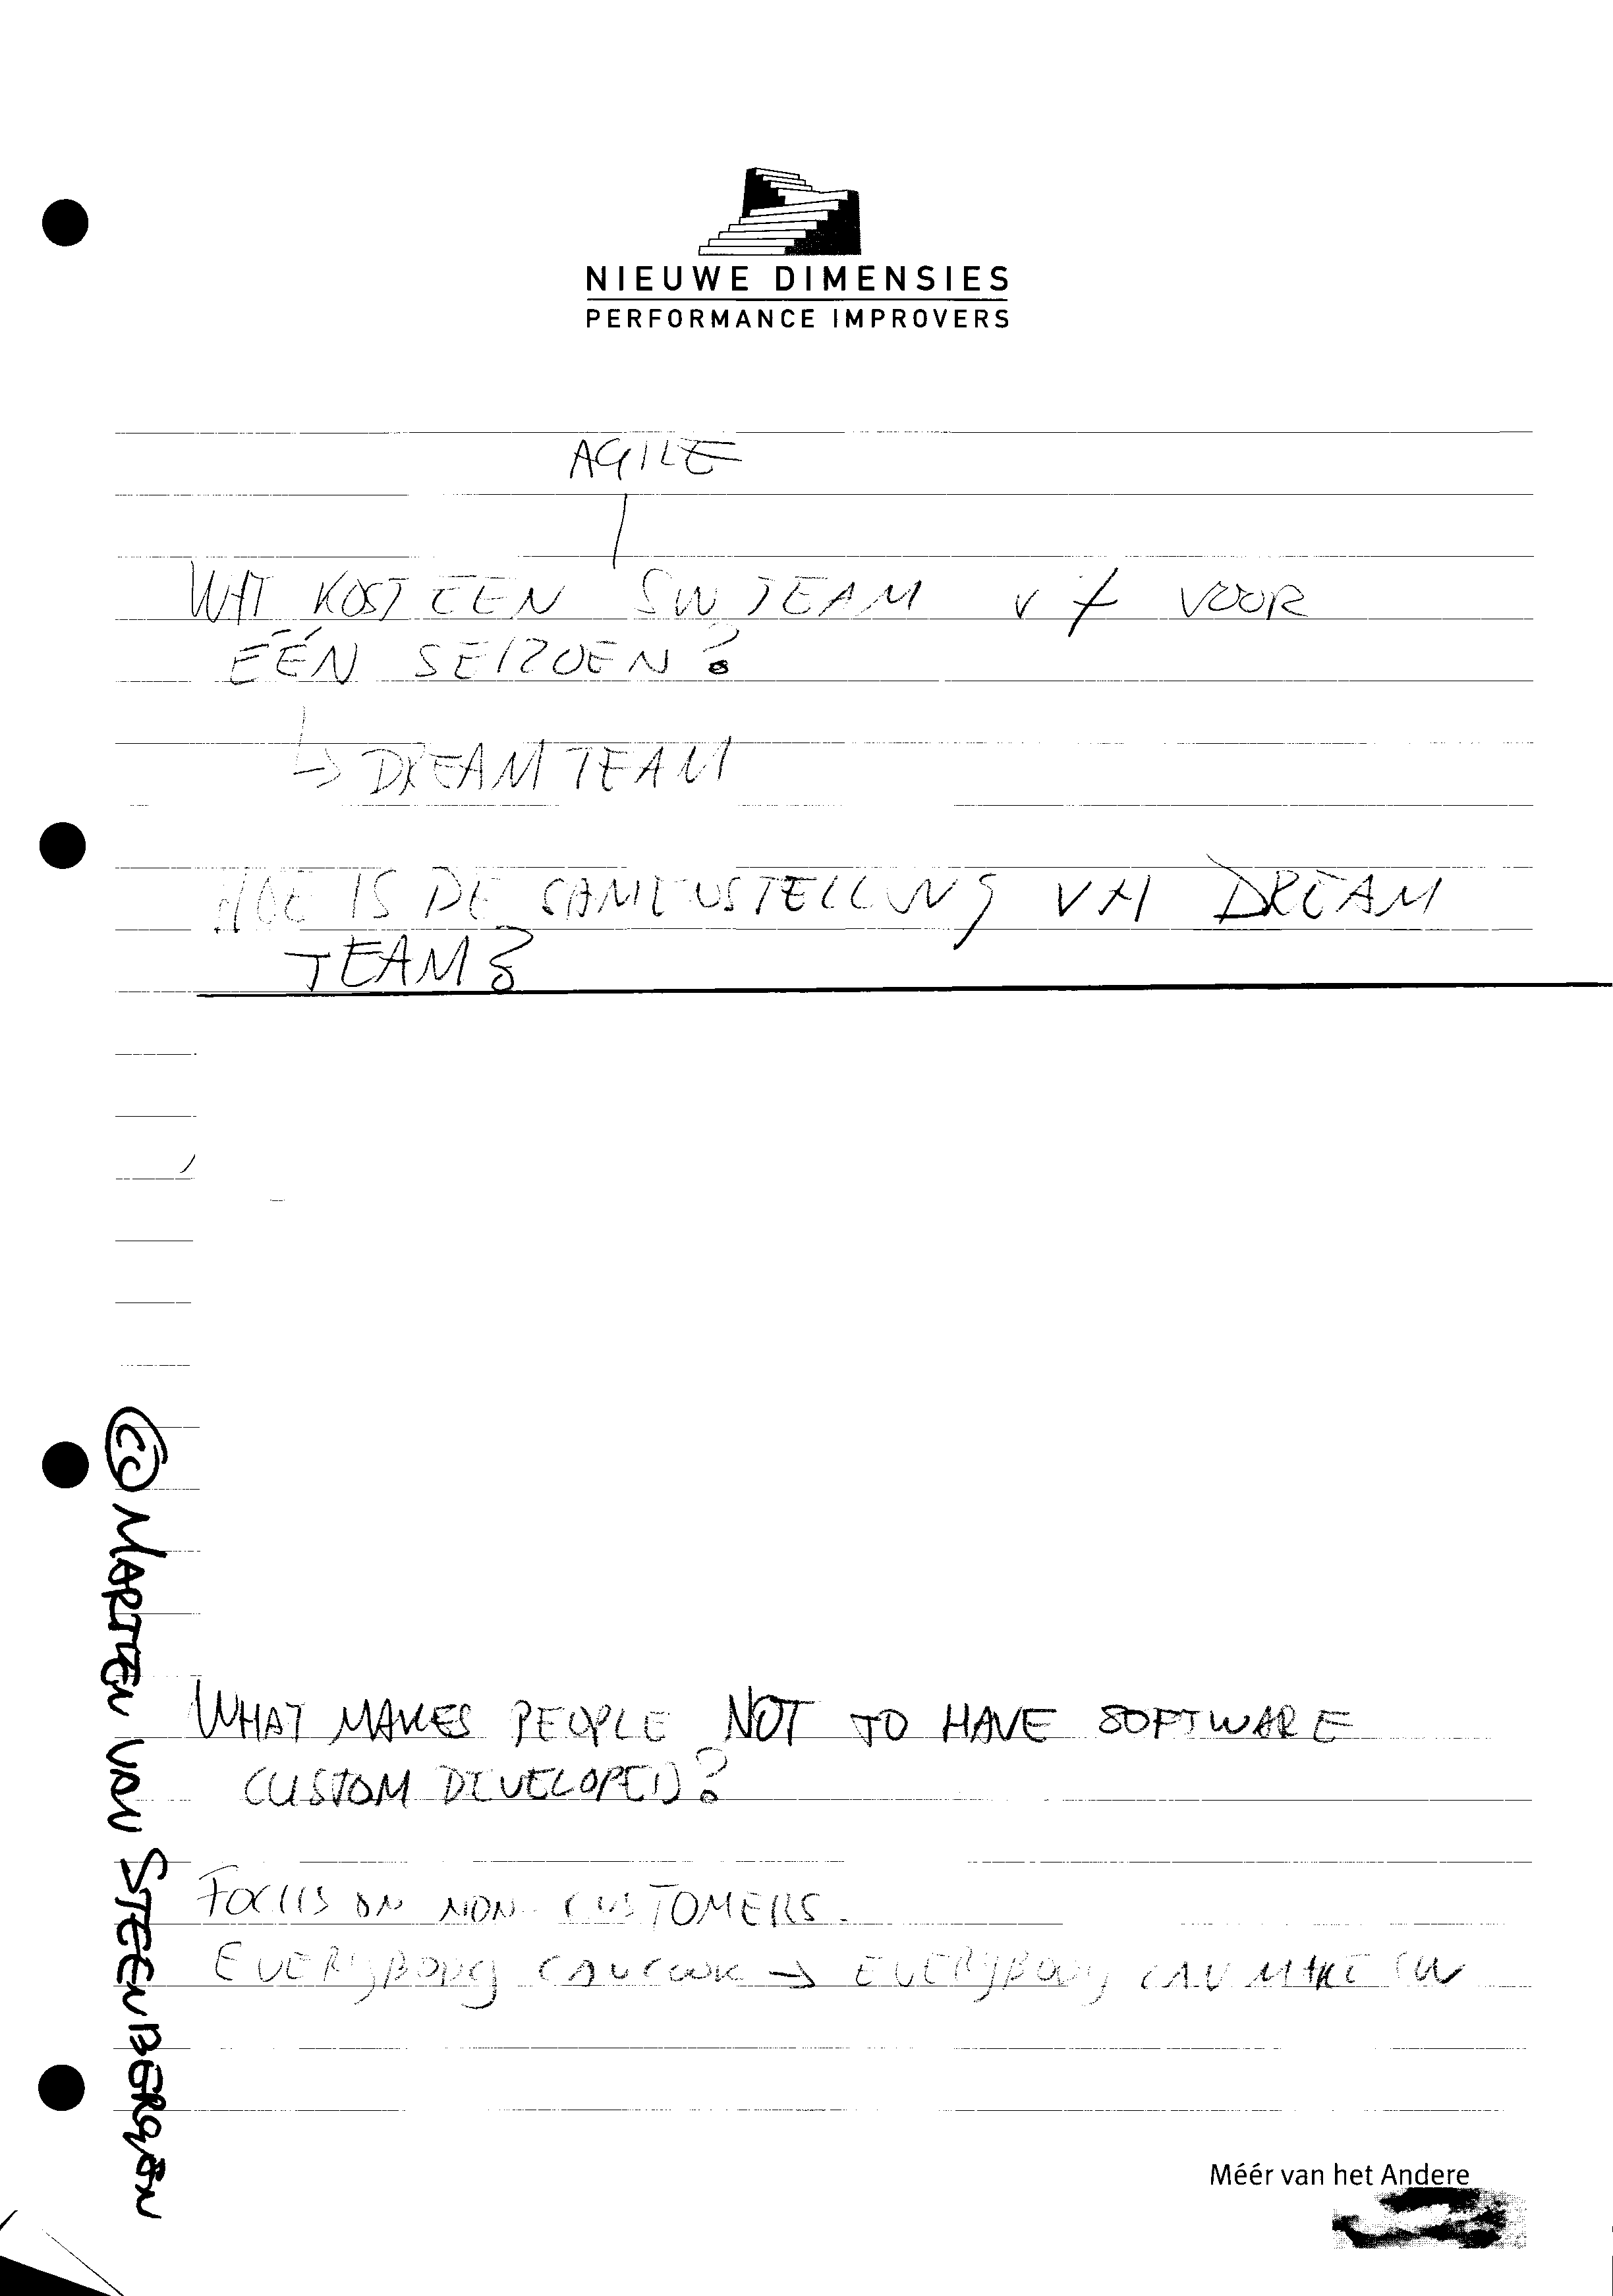 NIEUWE DIMENSIES
PERFORMANCE IMPROVERS
AGILE
WAT KOST EEN SW TEAM v 7 VOOR
ÉÉN SEIZOEN?
↳ DREAM TEAM
HOE IS DE SAMENSTELLING VH DREAM
TEAM?
© MARTIEN VAN STEENBERGEN
WHAT MAKES PEOPLE NOT TO HAVE SOFTWARE
CUSTOM DEVELOPED?
FOCUS ON NON-CUSTOMERS.
EVERYBODY CAN COOK → EVERYBODY CAN MAKE SW
Méér van het Andere